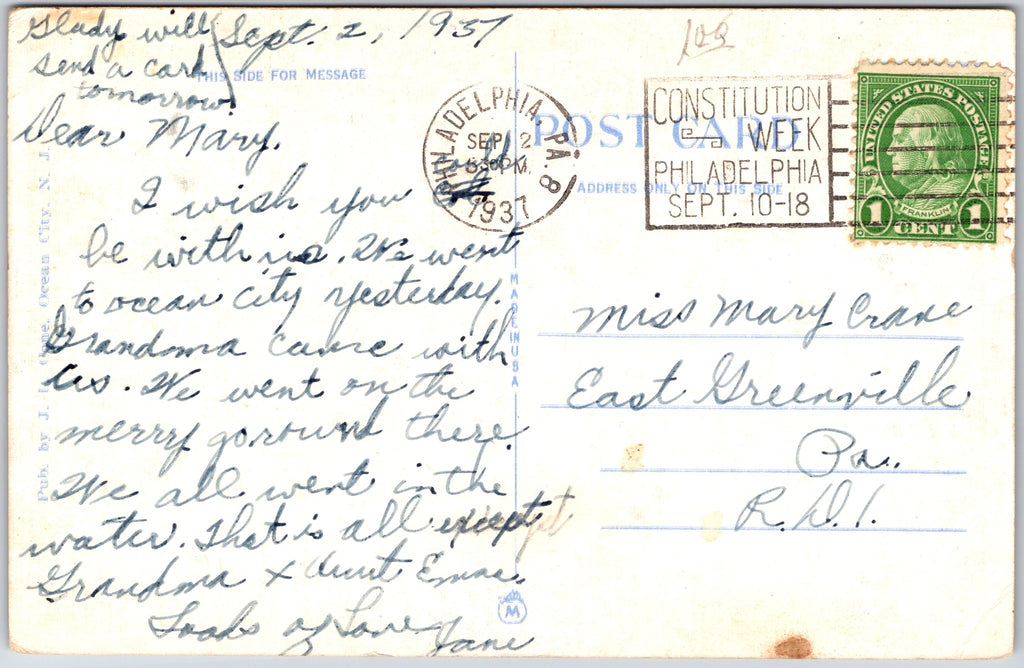 Glady will
send a card
tomorrow.
Sept. 2, 1937
THIS SIDE FOR MESSAGE
Dear Mary.
I wish you could
be with us. We went
to ocean city yesterday.
Grandma came with
us. We went on the
merry goround there.
We all went in the
water. That is all except
Grandma & Aunt Emma.
Loads of Love
Jane
Pub. by J. Ocean City, N. J.
MADE IN USA
M
POST CARD
ADDRESS ONLY ON THIS SIDE
PHILADELPHIA, PA. 8
SEP 2
PM
1937
CONSTITUTION
WEEK
PHILADELPHIA
SEPT. 10-18
UNITED STATES POSTAGE
FRANKLIN
1 CENT 1
Miss Mary Crane
East Greenville
Pa.
R.D.1.